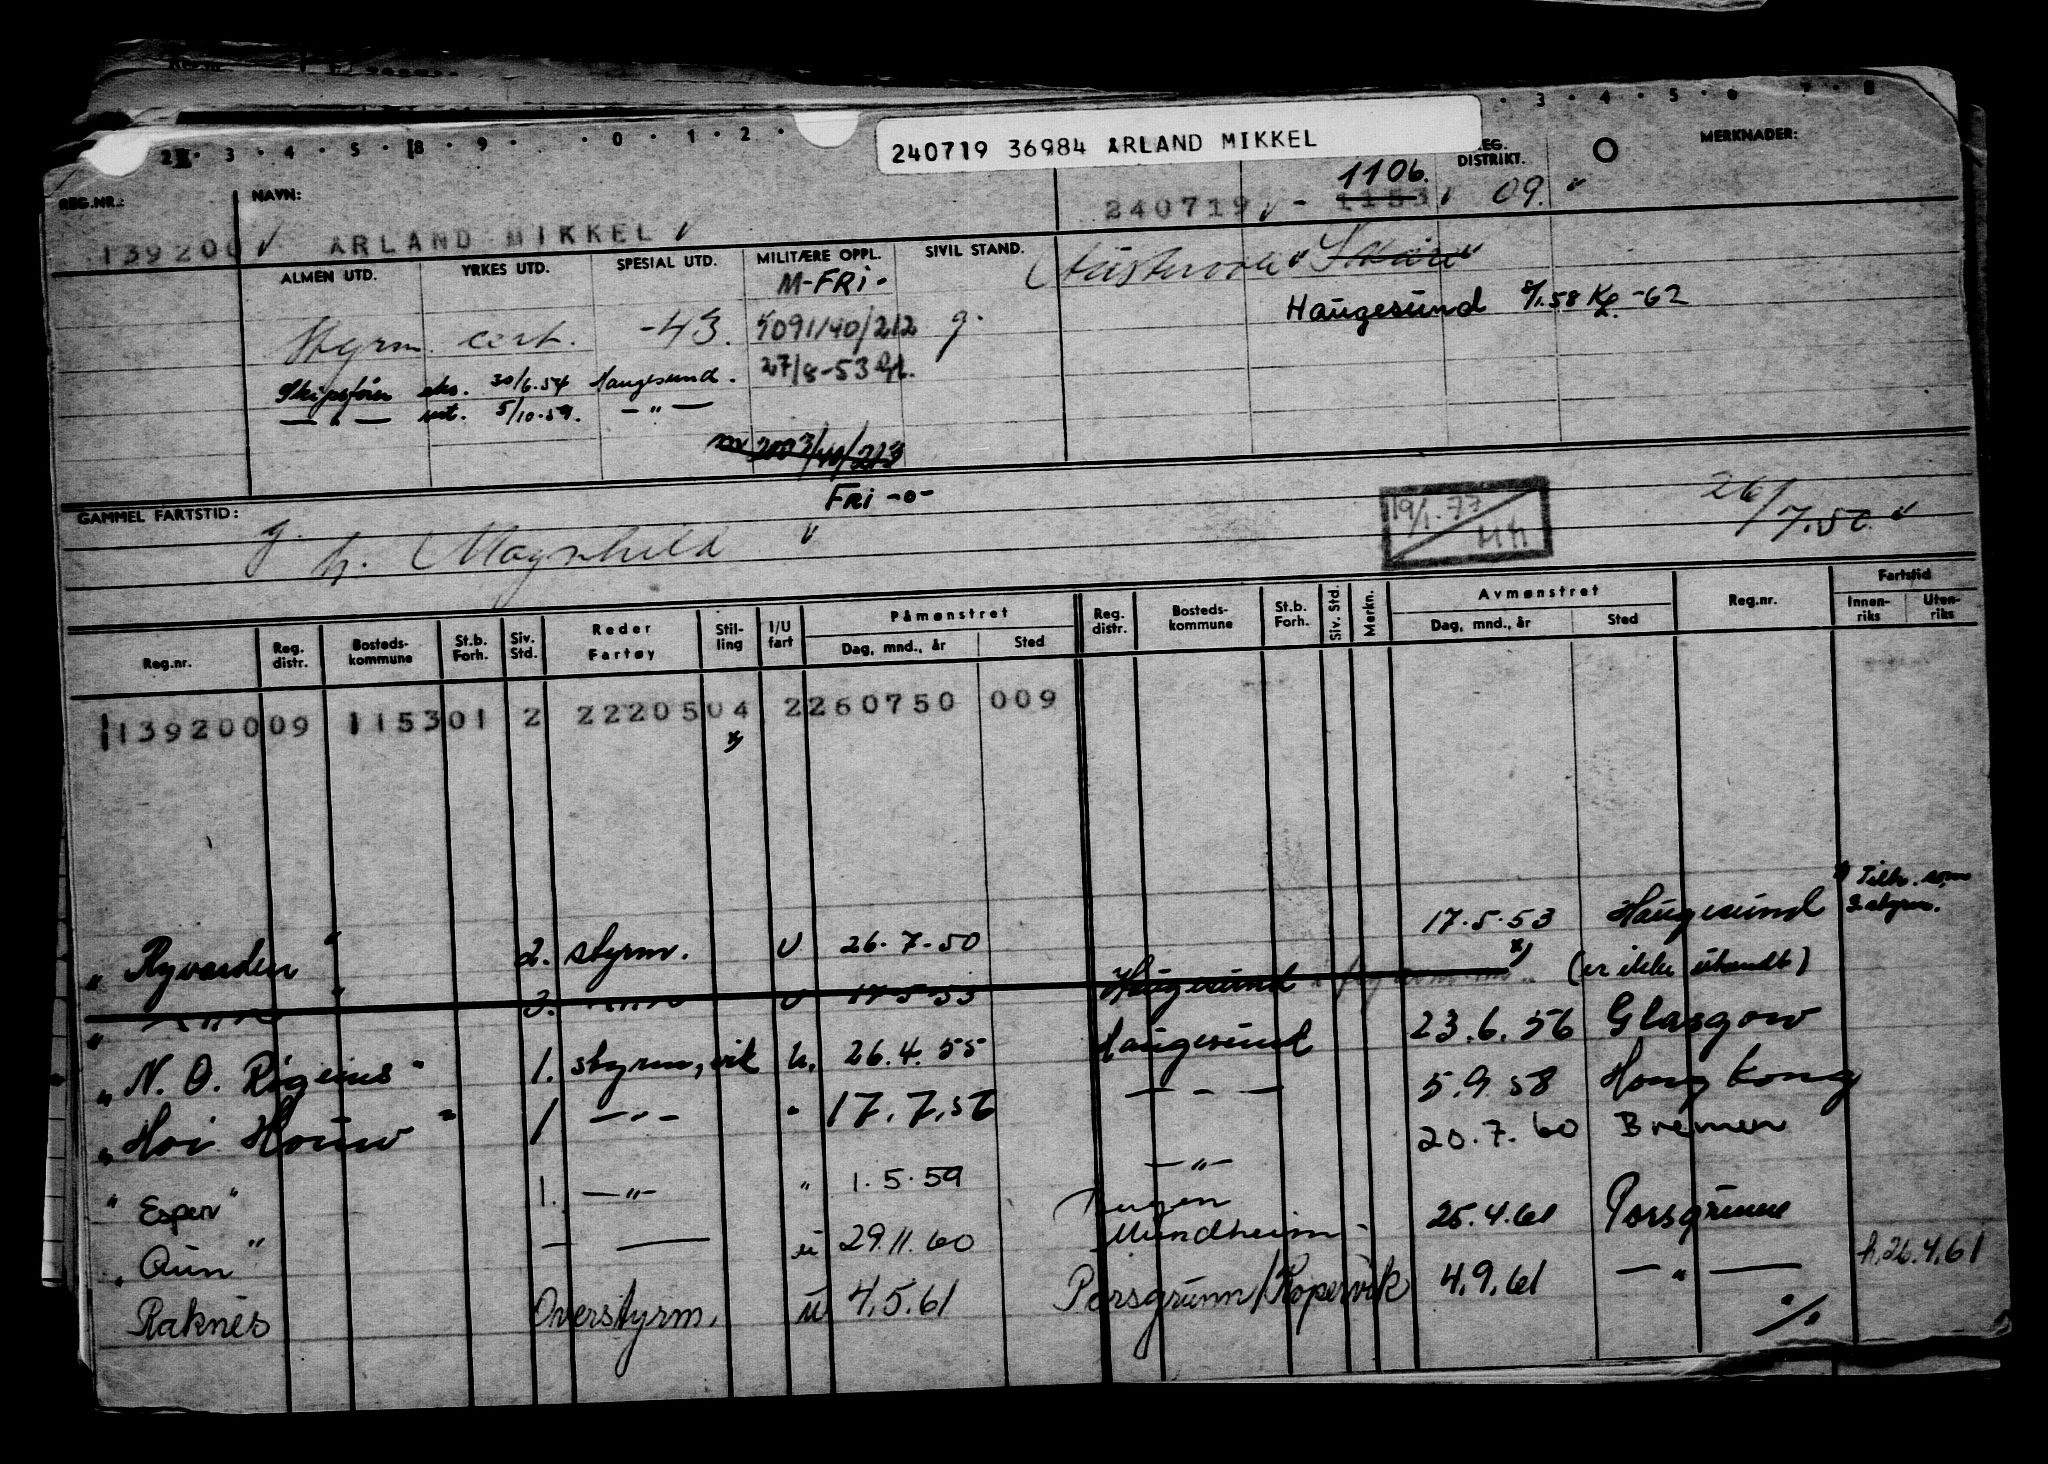 240719 36984 ARLAND MIKKEL
REG.NR.: NAVN: REG. DISTRIKT. MERKNADER:
139200 ARLAND MIKKEL 240719 - 1153 1106. 09.
ALMEN UTD. YRKES UTD. SPESIAL UTD. MILITÆRE OPPL. SIVIL STAND.
M-FRI-
Haugesund 8/1.58 -62
Styrm. cert. -43. 5091/40/212 g.
27/8-53
Skipsfører eks. 30/6.54 Haugesund.
— " — ut. 5/10.59. — " —
2003/40/213
GAMMEL FARTSTID: FRI -o-
g. h. Magnhild 19/1.77 HH 26/7.50
Reg.nr. Reg. distr. Bosteds-kommune St.b. Forh. Siv. Std. Reder Fartøy Stil-ling I/U fart Påmønstret Dag, mnd., år Sted Reg. distr. Bosteds-kommune St.b. Forh. Siv. Std. Merkn. Avmønstret Dag, mnd., år Sted Reg.nr. Fartstid Innen-riks Uten-riks
113920009 115301 2 222050 4 2260750 009
x)
x) Tilb. som 2 styrm.
" Ryvarden " 2. styrm. U 26.7-50 17.5.53 Haugesund
" 2. U 17-5-53 Haugesund x) (er ikke utsendt)
" N. O. Rogenæs " 1. styrm, vik u. 26.4.55 Haugesund 23.6.56 Glasgow
" Hoi Houw " 1 — " — " 17.7.56 — - — 5.9.58 Hong Kong
" Esper " 1. — " — " 1.5.59 — " — 20.7.60 Bremen
" Aun " — — u 29.11.60 Bergen Mundheim 25.4.61 Porsgrunn
Raknes Overstyrm. u 4.5.61 Porsgrunn/Kopervik 4.9.61 — " — h.26.4.61
./.